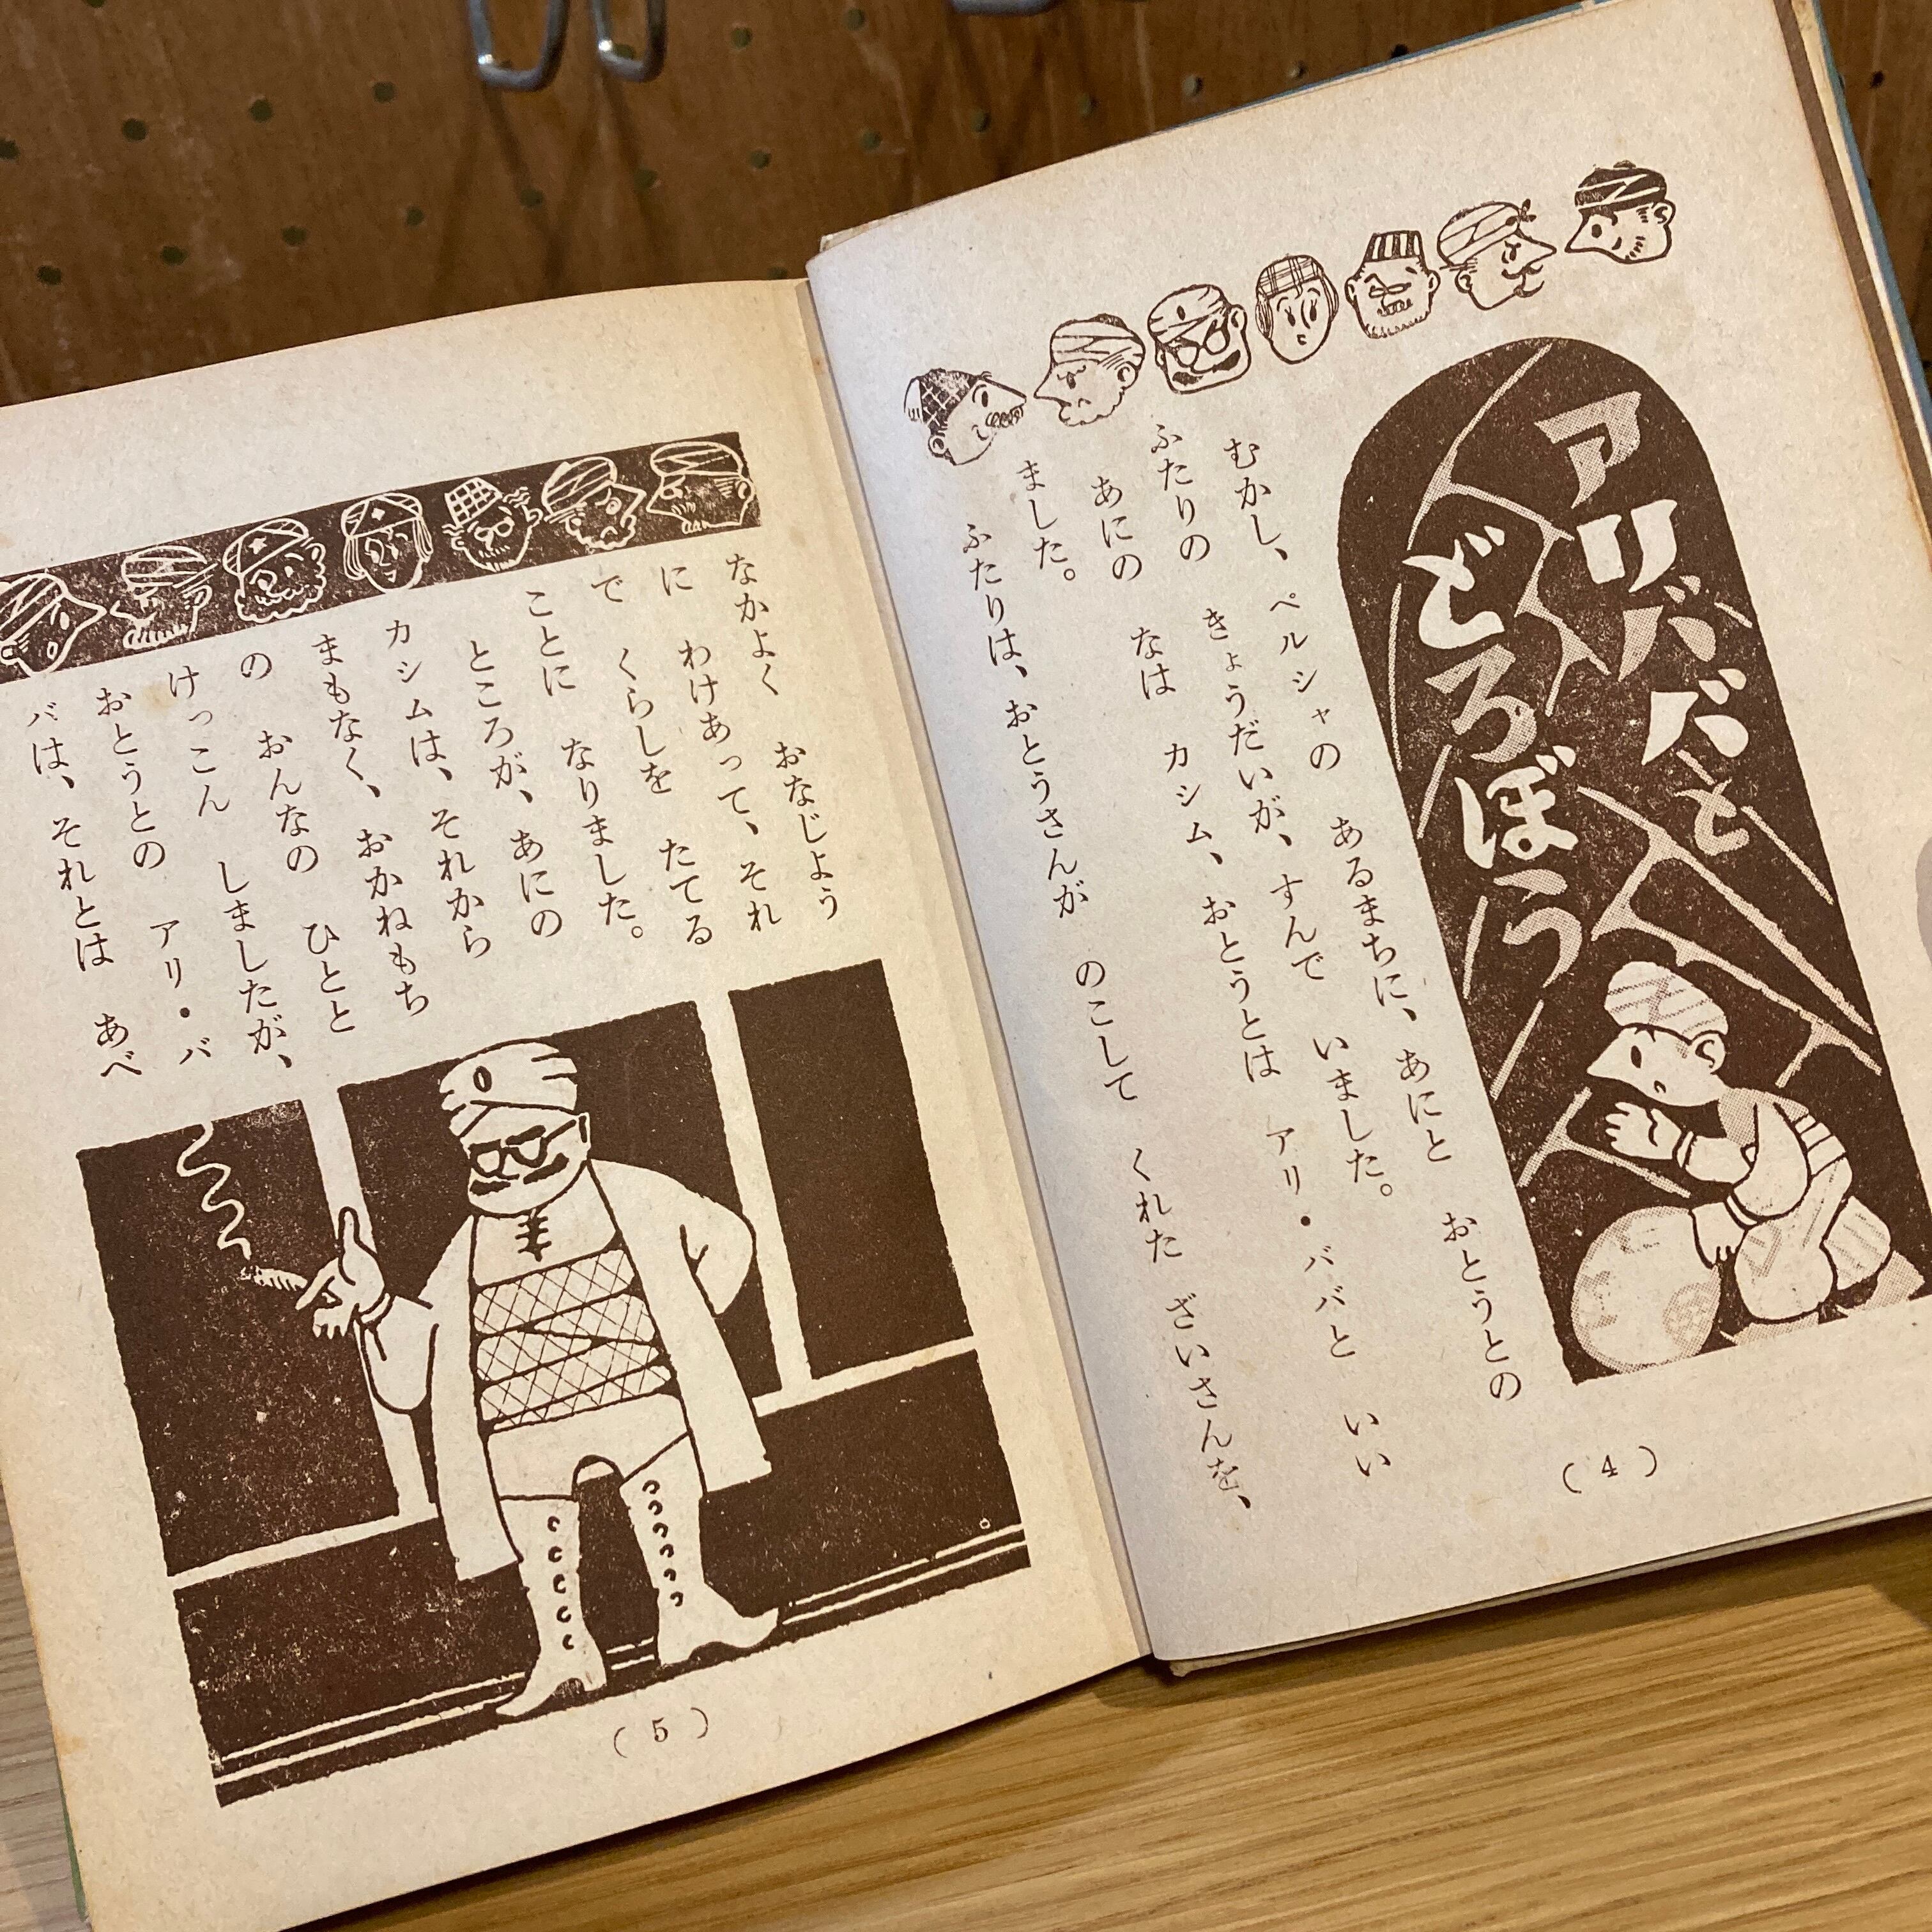 アリババと
どろぼう
むかし、ペルシャの あるまちに、あにと おとうとの
ふたりの きょうだいが、すんで いました。
あにの なは カシム、おとうとは アリ・ババと いい
ました。
ふたりは、おとうさんが のこして くれた ざいさんを、
（4）
なかよく おなじよう
に わけあって、それ
で くらしを たてる
ことに なりました。
ところが、あにの
カシムは、それから
まもなく、おかねもち
の おんなの ひとと
けっこん しましたが、
おとうとの アリ・バ
バは、それとは あべ
（5）